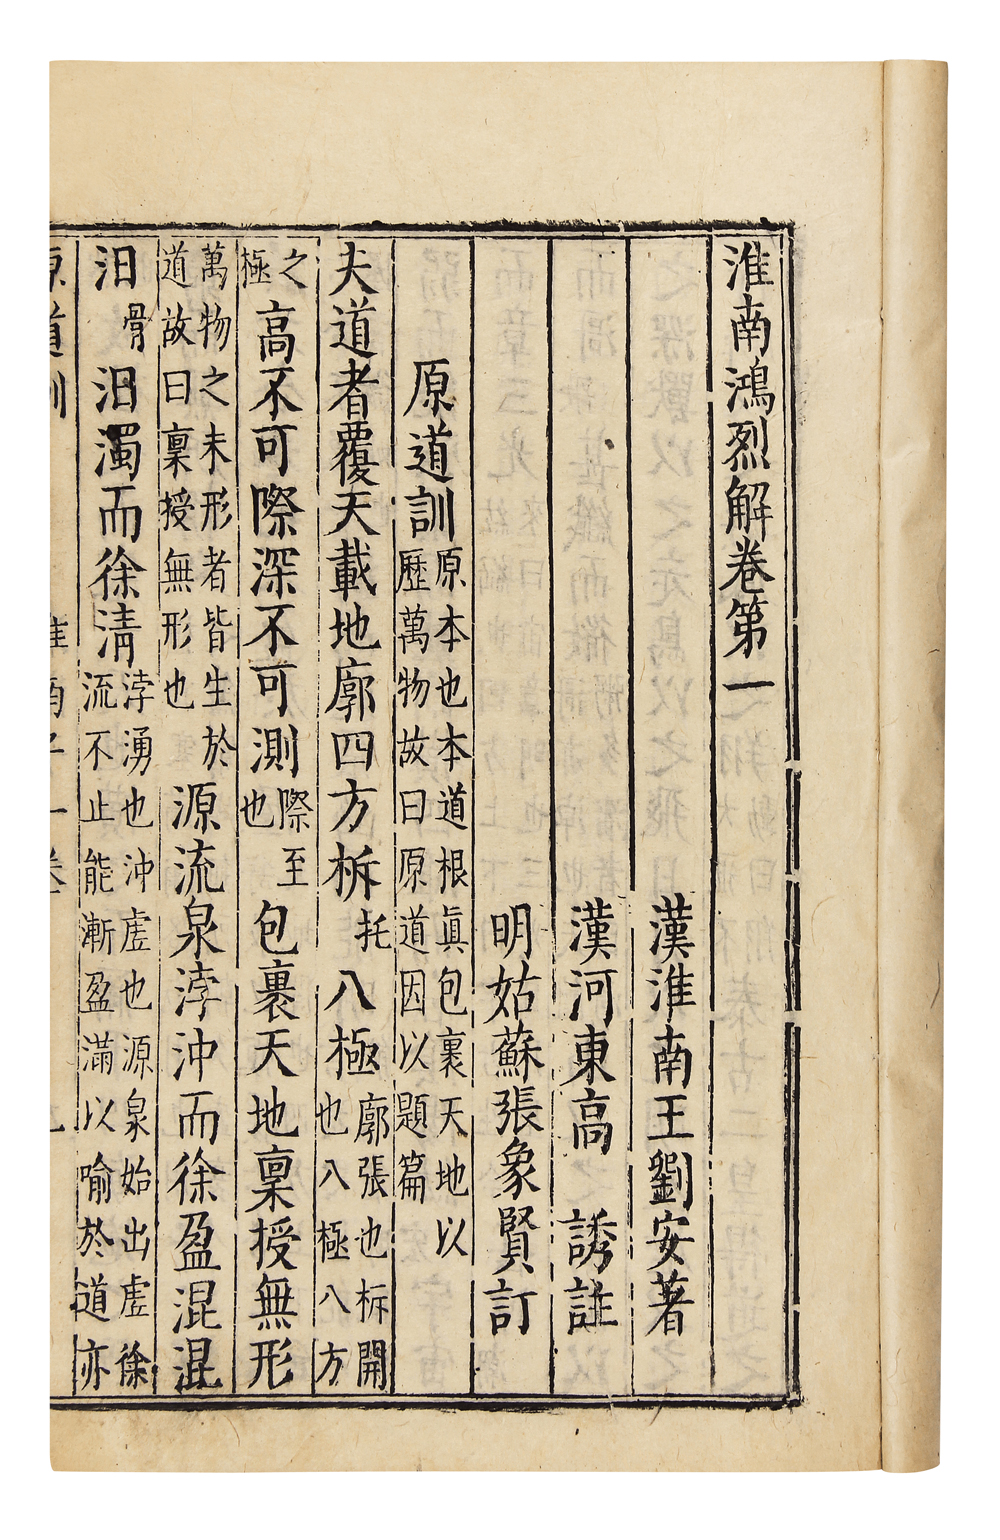 淮南鴻烈解卷第一
漢淮南王劉安著
漢河東高誘註
明姑蘇張象賢訂
原道訓原本也本道根眞包裹天地以歷萬物故曰原道因以題篇
夫道者覆天載地廓四方柝托八極廓張也柝開也八極八方
之極高不可際深不可測際至也包裹天地稟授無形
萬物之未形者皆生於道故曰稟授無形也源流泉浡沖而徐盈混混
汩骨汩濁而徐清浡湧也沖虛也源泉始出虛徐流不止能漸盈滿以喻於道亦
原道訓 淮南子一卷